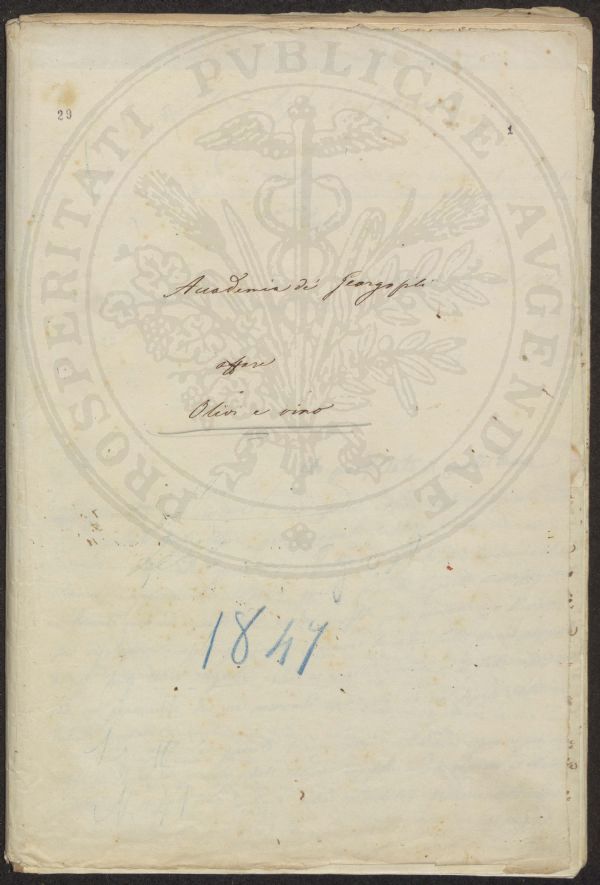 PROSPERITATI PVBLICAE AVGENDAE
29
1
Accademia de' Georgofili
affare
Olivi e vino
1847